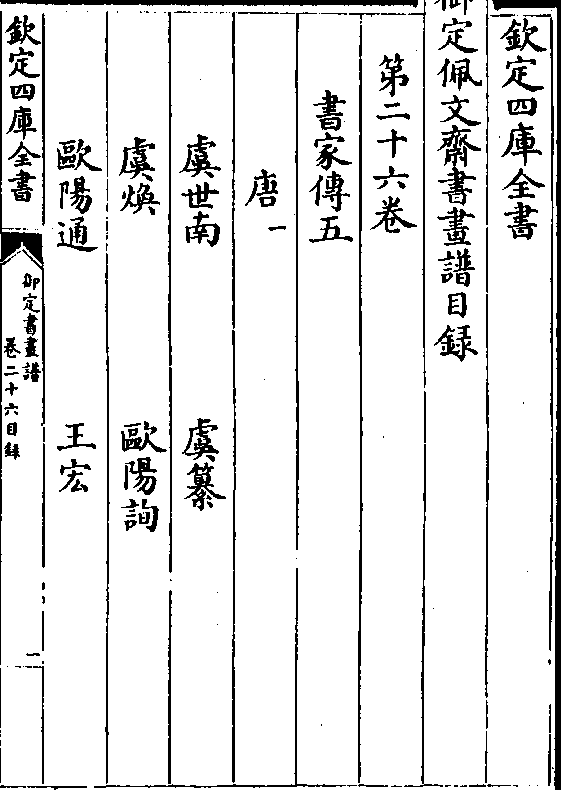 欽定四庫全書
御定佩文齋書畫譜目録
第二十六卷
書家傳五
唐一
虞世南
虞纂
虞煥
歐陽詢
歐陽通
王宏
欽定四庫全書
御定書畫譜
卷二十六目録
一